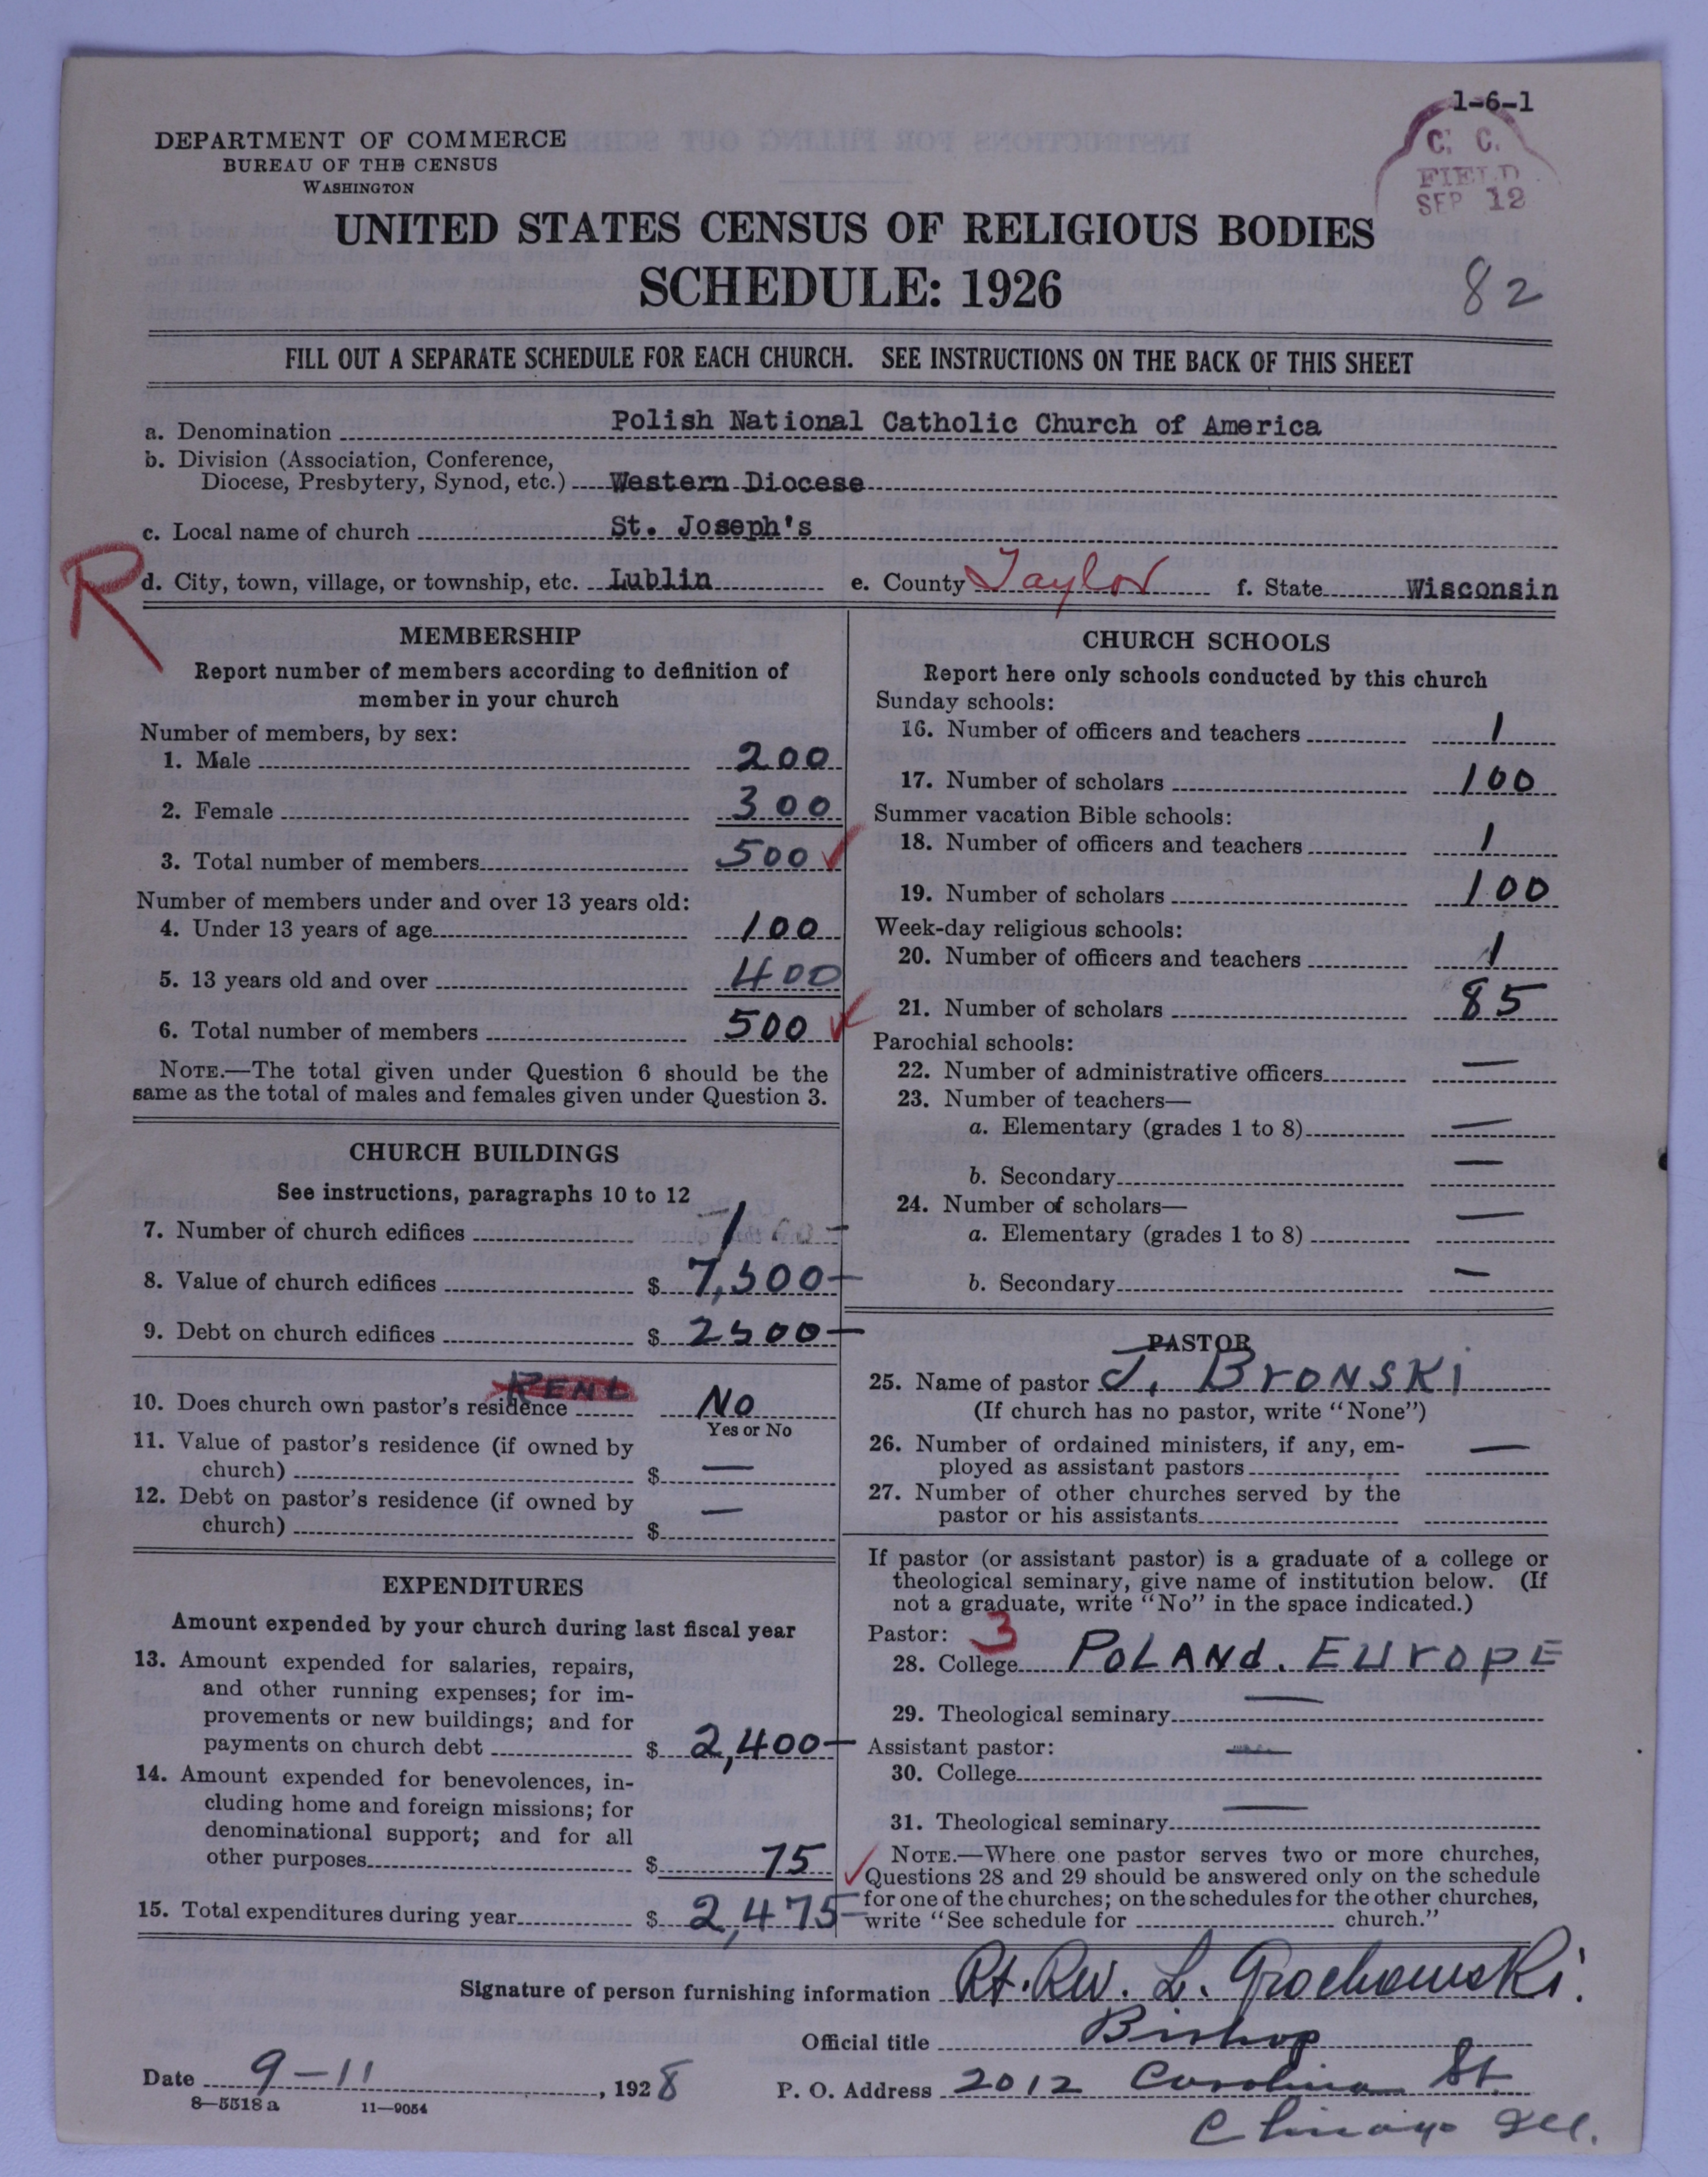 1-6-1
C. C.
FIELD
SEP 12
DEPARTMENT OF COMMERCE
BUREAU OF THE CENSUS
WASHINGTON
UNITED STATES CENSUS OF RELIGIOUS BODIES
SCHEDULE: 1926
82
FILL OUT A SEPARATE SCHEDULE FOR EACH CHURCH. SEE INSTRUCTIONS ON THE BACK OF THIS SHEET
a. Denomination Polish National Catholic Church of America
b. Division (Association, Conference,
Diocese, Presbytery, Synod, etc.) Western Diocese
c. Local name of church St. Joseph's
R d. City, town, village, or township, etc. Lublin e. County Taylor f. State Wisconsin
MEMBERSHIP
Report number of members according to definition of
member in your church
Number of members, by sex:
1. Male 200
2. Female 300
3. Total number of members 500
Number of members under and over 13 years old:
4. Under 13 years of age 100
5. 13 years old and over 400
6. Total number of members 500
NOTE.—The total given under Question 6 should be the
same as the total of males and females given under Question 3.
CHURCH BUILDINGS
See instructions, paragraphs 10 to 12
7. Number of church edifices 1
8. Value of church edifices $ 7,500—
9. Debt on church edifices $ 2500—
RENT
10. Does church own pastor's residence No
Yes or No
11. Value of pastor's residence (if owned by
church) $ —
12. Debt on pastor's residence (if owned by
church) $ —
EXPENDITURES
Amount expended by your church during last fiscal year
13. Amount expended for salaries, repairs,
and other running expenses; for im-
provements or new buildings; and for
payments on church debt $ 2,400—
14. Amount expended for benevolences, in-
cluding home and foreign missions; for
denominational support; and for all
other purposes $ 75
15. Total expenditures during year $ 2,475—
CHURCH SCHOOLS
Report here only schools conducted by this church
Sunday schools:
16. Number of officers and teachers 1
17. Number of scholars 100
Summer vacation Bible schools:
18. Number of officers and teachers 1
19. Number of scholars 100
Week-day religious schools:
20. Number of officers and teachers 1
21. Number of scholars 85
Parochial schools:
22. Number of administrative officers —
23. Number of teachers—
a. Elementary (grades 1 to 8) —
b. Secondary —
24. Number of scholars—
a. Elementary (grades 1 to 8) —
b. Secondary —
PASTOR
25. Name of pastor J. BrONSKI
(If church has no pastor, write "None")
26. Number of ordained ministers, if any, em-
ployed as assistant pastors —
27. Number of other churches served by the
pastor or his assistants
If pastor (or assistant pastor) is a graduate of a college or
theological seminary, give name of institution below. (If
not a graduate, write "No" in the space indicated.)
Pastor: 3
28. College POLANd. EUrOpE
29. Theological seminary —
Assistant pastor:
30. College —
31. Theological seminary —
NOTE.—Where one pastor serves two or more churches,
Questions 28 and 29 should be answered only on the schedule
for one of the churches; on the schedules for the other churches,
write "See schedule for church."
Signature of person furnishing information Rt. Rev. L. Grochowski.
Official title Bishop
Date 9-11, 1928 P. O. Address 2012 Carolina St.
8—5518 a 11—9054
Chicago Ill.